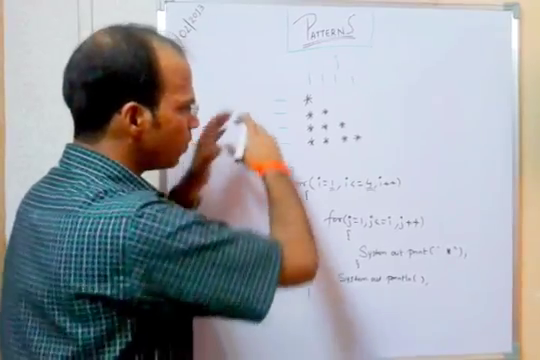 PATTERNS
j
*
* *
* * *
* * * *
(i=1, i<=4, i++)
{
for(j=1, j<=i, j++)
{
System out print(" * "),
}
System out println( ),
}